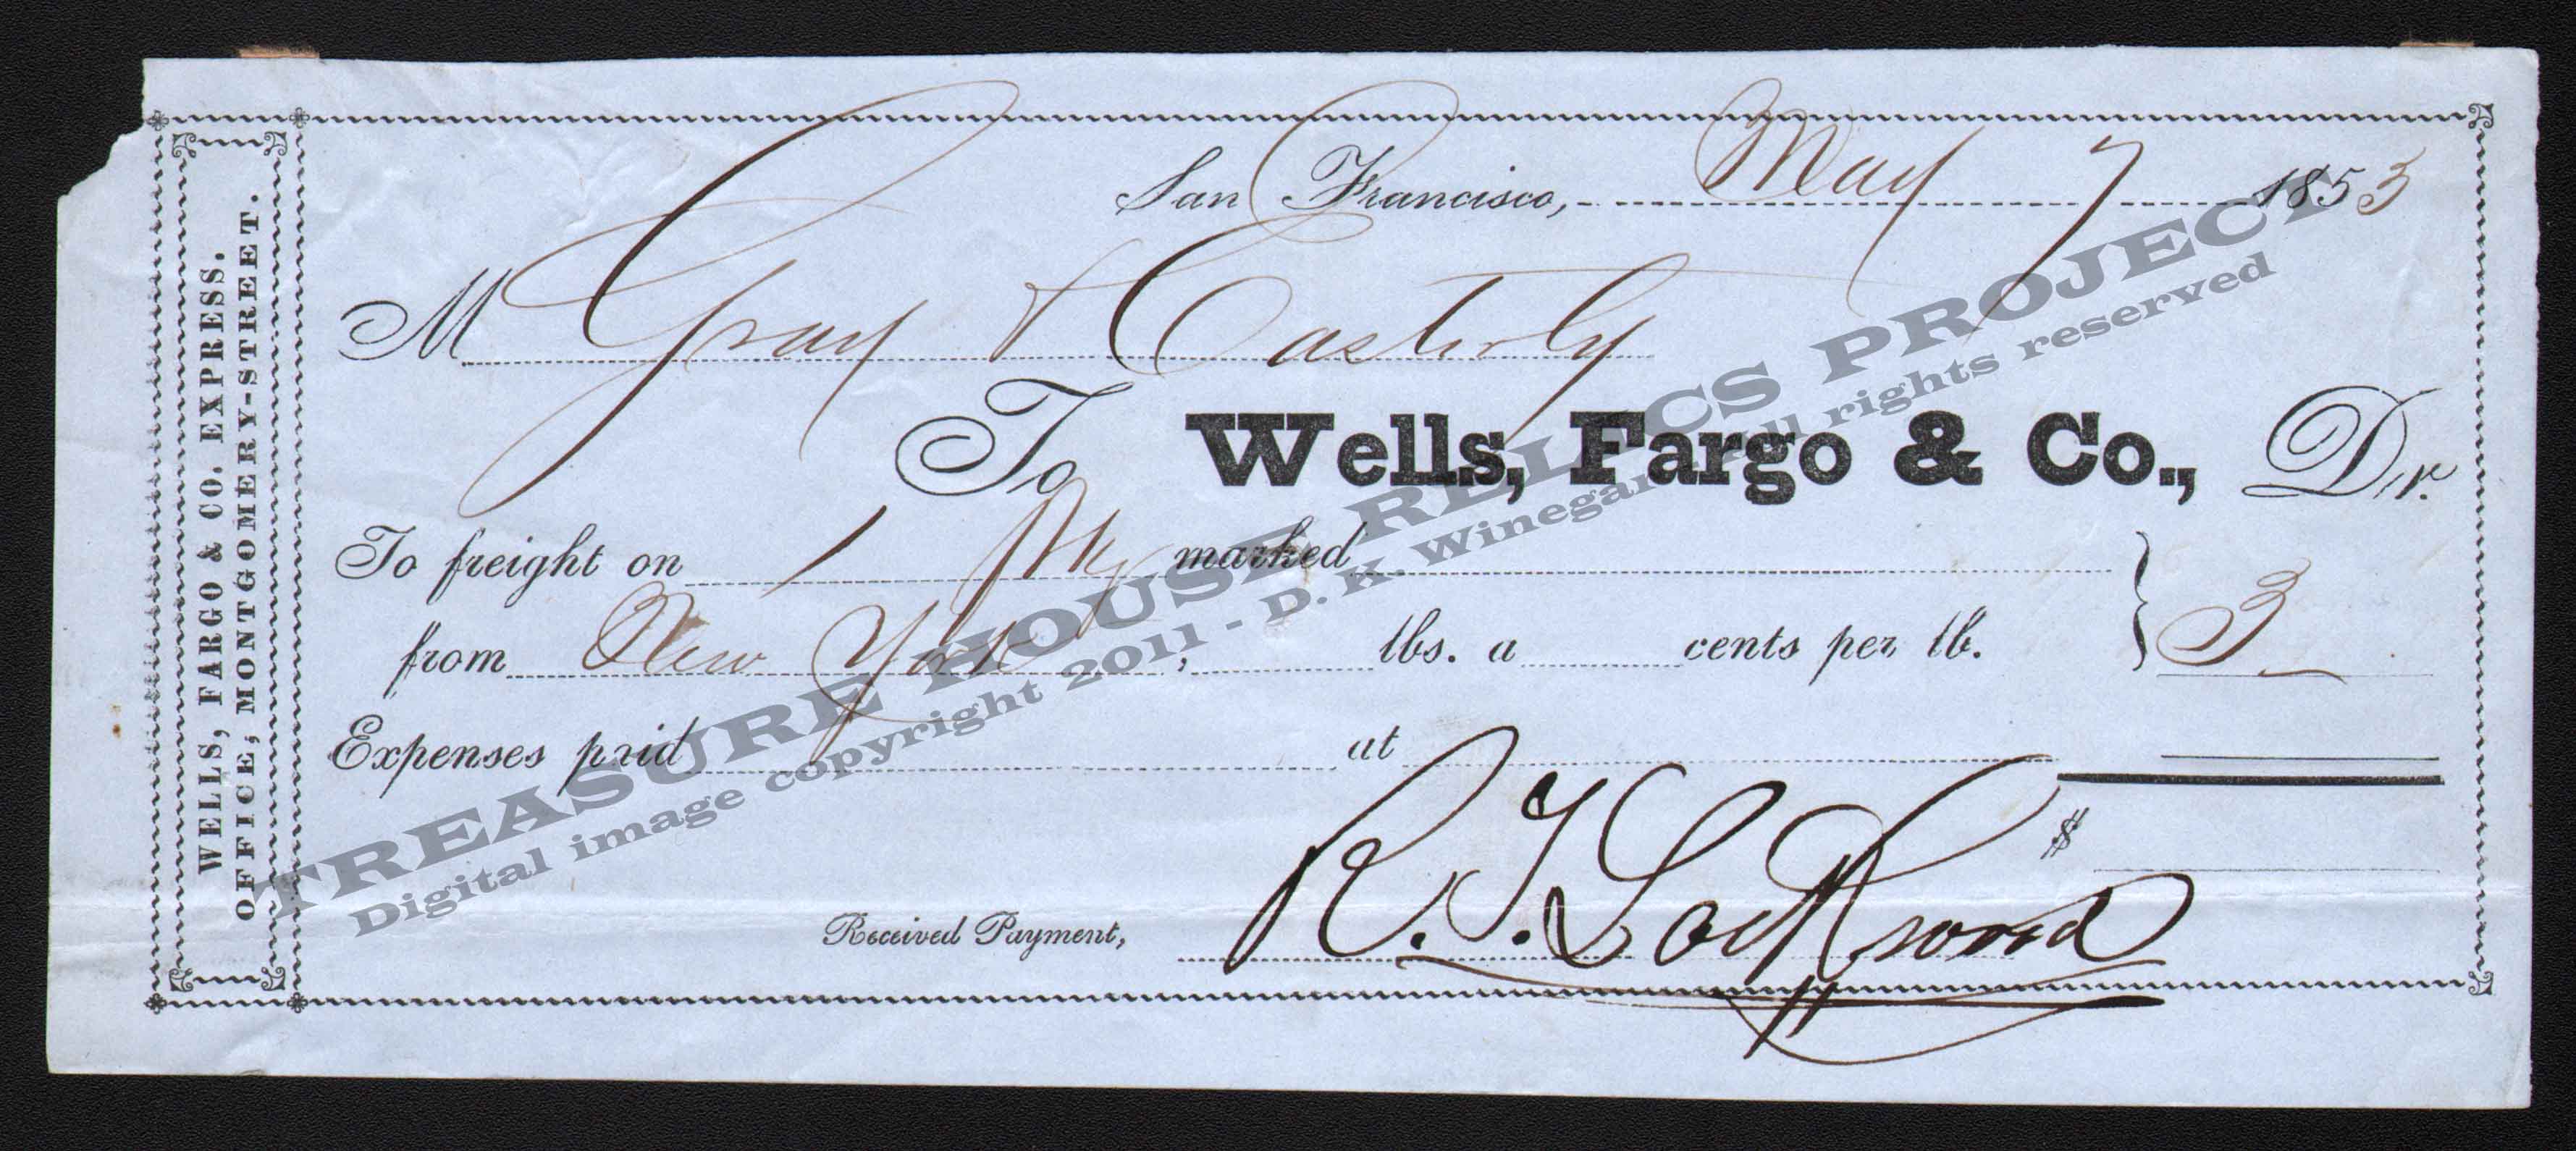 WELLS, FARGO & CO. EXPRESS.
OFFICE, MONTGOMERY-STREET.
San Francisco, May 7 1853
M Gray & Easterly
To Wells, Fargo & Co., Dr.
To freight on 1 Pkg marked
from New York, lbs. a cents per lb. 3
Expenses paid at
$
Received Payment, R. T. Lockwood
TREASURE HOUSE RELICS PROJECT
Digital image copyright 2011 - D. K. Winegar - All rights reserved